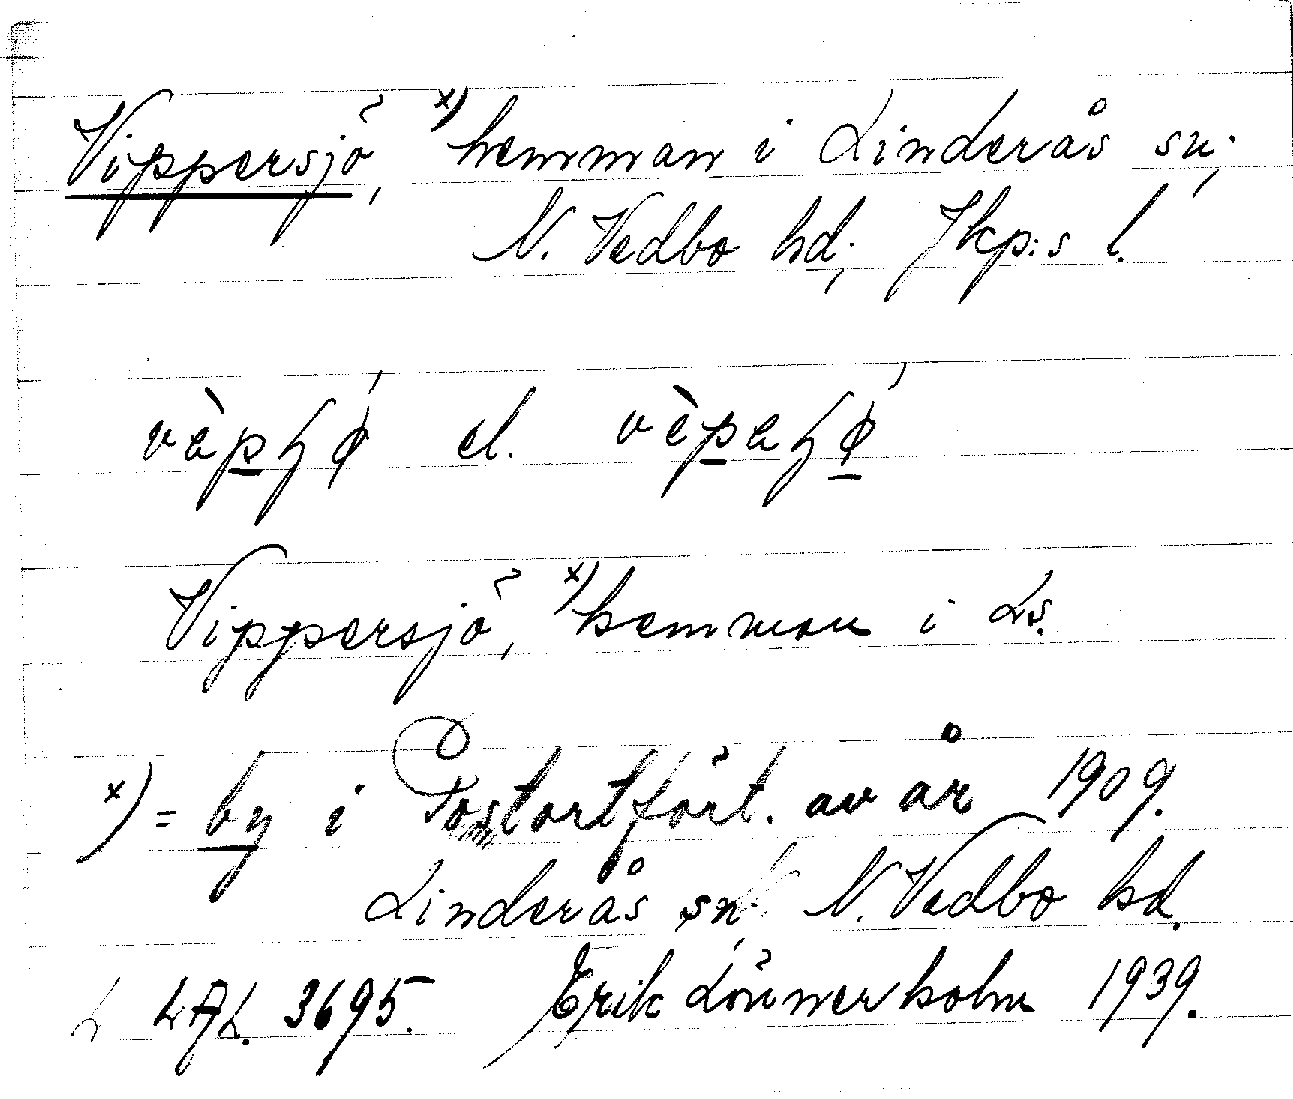 Vippersjö, x) hemman i Linderås sn;
N. Vedbo hd; Jkp:s l.
el.
Vippersjö, x) hemman i Ls.
x) = by i Postortfört. av år 1909.
Linderås sn N. Vedbo hd.
LAL. 3695. Erik Lönnerholm 1939.